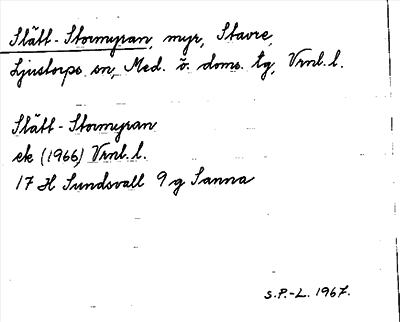 Slått-Stormyran, myr, Stavre,
Ljustorps sn, Med. ö. doms. tg, Vrnl. l.
Slått-Stormyran
ek (1966) Vrnl. l.
17 H Sundsvall 9 g Sanna
S.P.-L. 1967.